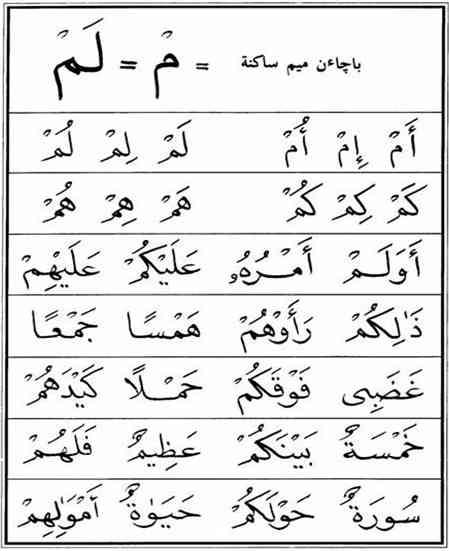 باچاءن ميم ساكنة = مْ = لَمْ
أَمْ إِمْ أُمْ لَمْ لِمْ لُمْ
كَمْ كِمْ كُمْ هَمْ هِمْ هُمْ
أَوَلَمْ أَمْرُهُۥ عَلَيْكُمْ عَلَيْهِمْ
ذَٰلِكُمْ رَأَوْهُمْ هَمْسًا جَمْعًا
غَضَبِى فَوْقَكُمْ حَمْلًا كَيْدَهُمْ
خَمْسَةٌ بَيْنَكُمْ عَظِيمٌ فَلَهُمْ
سُورَةٌ حَوْلَكُمْ حَيَوٰةٌ أَمْوَٰلِهِمْ